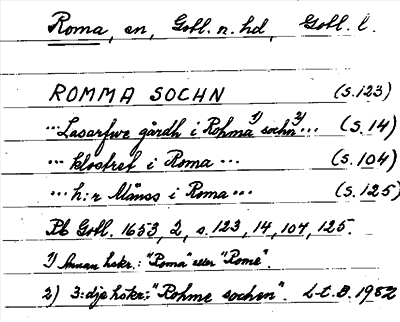 Roma, sn, Gotl. n. hd, Gotl. l.
ROMMA SOCHN (s. 123)
... Lasarfwe gårdh i Rohma 1) sochn 2) ... (s. 14)
... klostret i Roma ... (s. 104)
... h:r Månss i Roma ... (s. 125)
Pb Gotl. 1653, 2, s. 123, 14, 104, 125.
1) Annan hskr.: "Roma" eller "Rome".
2) 3:dje hskr.: "Rohme sochen". L-t. B. 1952